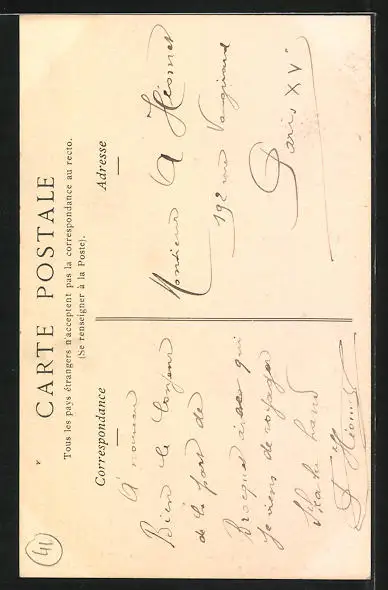 CARTE POSTALE
Tous les pays étrangers n'acceptent pas la correspondance au recto.
(Se renseigner à la Poste).
Correspondance
Bien le bonjour
de la part de
avec qui
je viens de voyager
Adresse
Monsieur A
192 rue Vaugirard
Paris XV
41